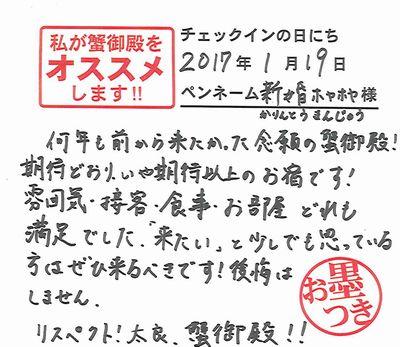 私が蟹御殿を
オススメ
します!!
チェックインの日にち
2017年1月19日
ペンネーム新婚ホヤホヤ様
かりんとうまんじゅう
何年も前から来たかった念願の蟹御殿!
期待どおり、いや期待以上のお宿です!
雰囲気・接客・食事・お部屋 どれも
満足でした、「来たい」と少しでも思っている
方はぜひ来るべきです!後悔は
しません。
リスペクト!太良、蟹御殿!!
お墨つき